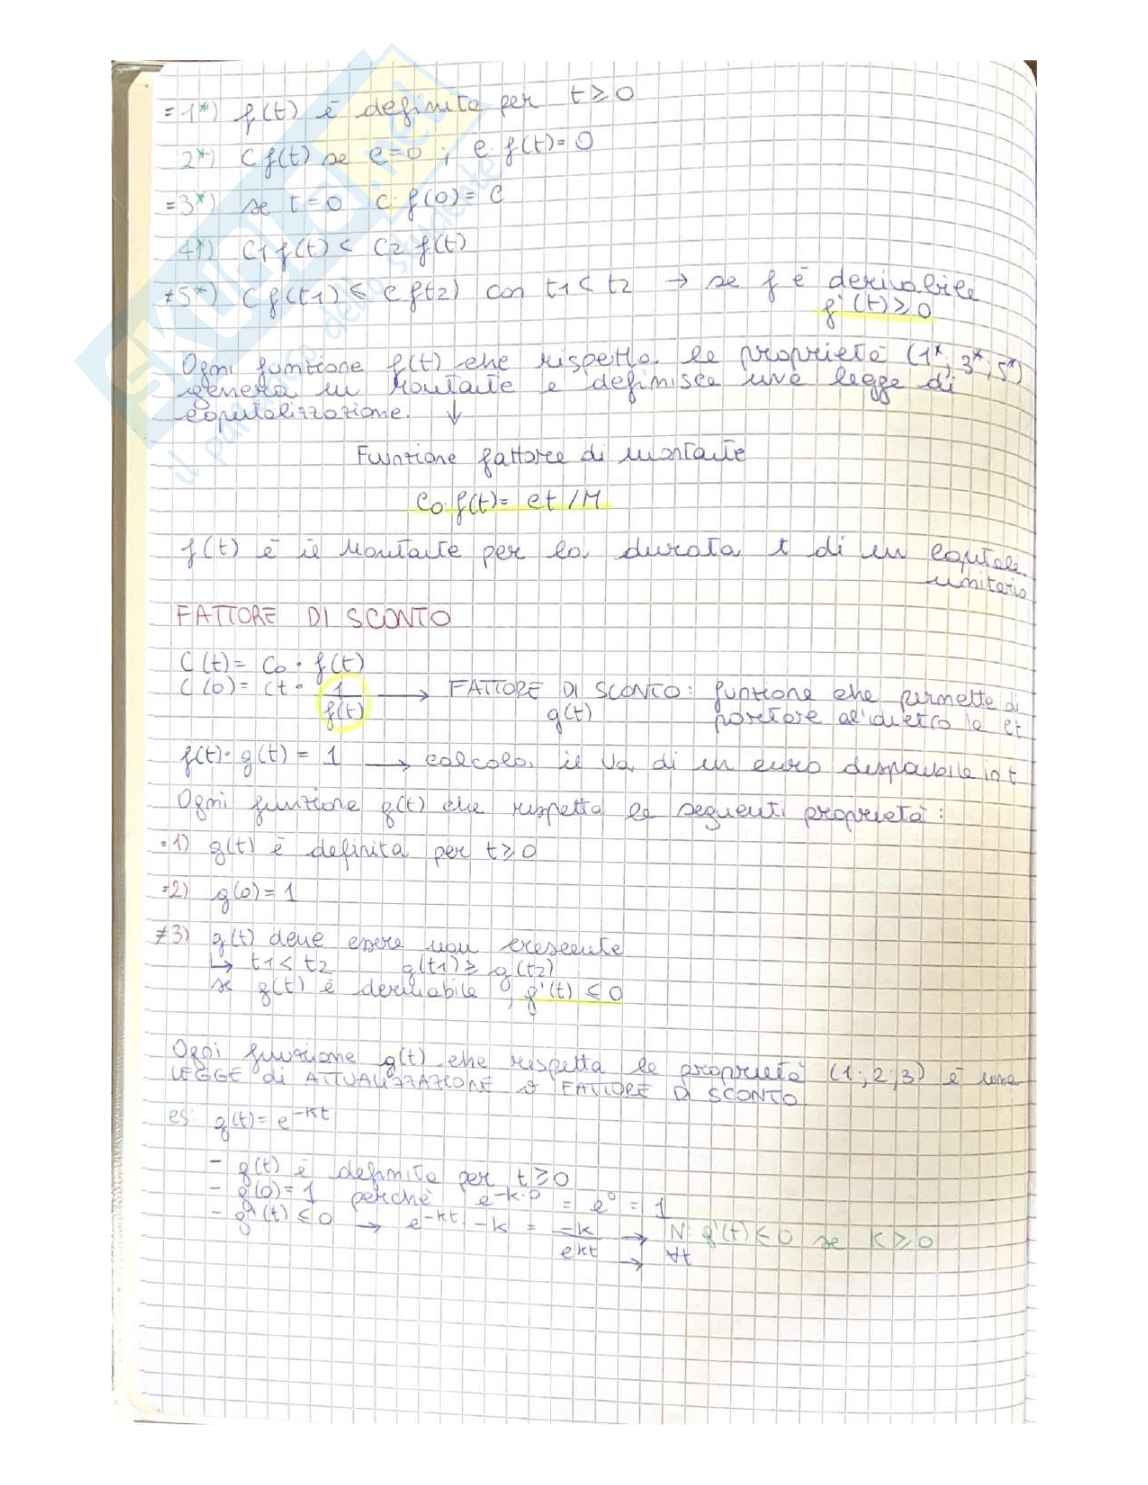 =1*) f(t) è definita per t ≥ 0
2*) C f(t) se C=0 ; C f(t)= 0
=3*) se t=0 C·f(0)= C
4*) C1 f(t) < C2 f(t)
≠5*) C f(t1) ≤ C f(t2) con t1 < t2 → se f è derivabile
f'(t) ≥ 0
Ogni funzione f(t) che rispetta le proprietà (1*, 3*, 5*)
genera un Montante e definisce una legge di
capitalizzazione. ↓
Funzione fattore di montante
C0·f(t)= Ct /M
f(t) è il Montante per la durata t di un capitale
unitario
FATTORE DI SCONTO
C(t)= C0 · f(t)
C(0)= Ct · 1/f(t) → FATTORE DI SCONTO: funzione che permette di
g(t) portare all'indietro la Ct
f(t)· g(t) = 1 → calcola il Va di un euro disponibile in t
Ogni funzione g(t) che rispetta le seguenti proprietà:
·1) g(t) è definita per t ≥ 0
=2) g(0)= 1
≠3) g(t) deve essere non crescente
↳ t1 < t2 g(t1) ≥ g(t2)
se g(t) è derivabile , g'(t) ≤ 0
Ogni funzione g(t) che rispetta le proprietà (1;2;3) è una
LEGGE di ATTUALIZZAZIONE o FATTORE DI SCONTO
es: g(t)= e^-kt
- g(t) è definita per t ≥ 0
- g(0)= 1 perchè e^-k·0 = e^0 = 1
- g'(t) ≤ 0 → e^-kt · -k = -k/e^kt → N: g'(t) ≤ 0 se k ≥ 0
→ ∀t
SKUOLA.net
il paradiso dello studente